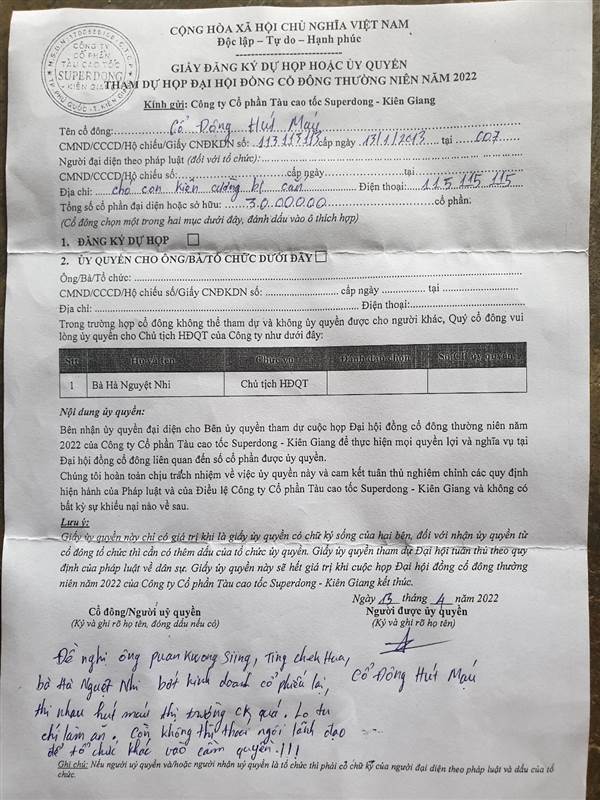 CỘNG HÒA XÃ HỘI CHỦ NGHĨA VIỆT NAM
Độc lập – Tự do – Hạnh phúc
CÔNG TY
CỔ PHẦN
TÀU CAO TỐC
SUPERDONG
KIÊN GIANG
GIẤY ĐĂNG KÝ DỰ HỌP HOẶC ỦY QUYỀN
THAM DỰ HỌP ĐẠI HỘI ĐỒNG CỔ ĐÔNG THƯỜNG NIÊN NĂM 2022
Kính gửi: Công ty Cổ phần Tàu cao tốc Superdong - Kiên Giang
Tên cổ đông: Cổ Đông Hút Máu
CMND/CCCD/Hộ chiếu/Giấy CNĐKDN số: 113113113 cấp ngày 13/1/2013 tại 007
Người đại diện theo pháp luật (đối với tổ chức):
CMND/CCCD/Hộ chiếu số: cấp ngày tại
Địa chỉ: chó con kiến cường bị cắn Điện thoại: 115 115 115
Tổng số cổ phần đại diện hoặc sở hữu: 3000000 cổ phần.
(Cổ đông chọn một trong hai mục dưới đây, đánh dấu vào ô thích hợp)
1. ĐĂNG KÝ DỰ HỌP
2. ỦY QUYỀN CHO ÔNG/BÀ/TỔ CHỨC DƯỚI ĐÂY
Ông/Bà/Tổ chức:
CMND/CCCD/Hộ chiếu số/Giấy CNĐKDN số: cấp ngày tại
Địa chỉ: Điện thoại:
Trong trường hợp cổ đông không thể tham dự và không ủy quyền được cho người khác, Quý cổ đông vui
lòng ủy quyền cho Chủ tịch HĐQT của Công ty như dưới đây:
Stt Họ và tên Chức vụ Đánh dấu chọn Số CP ủy quyền
1 Bà Hà Nguyệt Nhi Chủ tịch HĐQT
Nội dung ủy quyền:
Bên nhận ủy quyền đại diện cho Bên ủy quyền tham dự cuộc họp Đại hội đồng cổ đông thường niên năm
2022 của Công ty Cổ phần Tàu cao tốc Superdong - Kiên Giang để thực hiện mọi quyền lợi và nghĩa vụ tại
Đại hội đồng cổ đông liên quan đến số cổ phần được ủy quyền.
Chúng tôi hoàn toàn chịu trách nhiệm về việc ủy quyền này và cam kết tuân thủ nghiêm chỉnh các quy định
hiện hành của Pháp luật và của Điều lệ Công ty Cổ phần Tàu cao tốc Superdong - Kiên Giang và không có
bất kỳ sự khiếu nại nào về sau.
Lưu ý:
Giấy ủy quyền này chỉ có giá trị khi là giấy ủy quyền có chữ ký sống của hai bên, đối với nhận ủy quyền từ
cổ đông tổ chức thì cần có thêm dấu của tổ chức ủy quyền. Giấy ủy quyền tham dự Đại hội tuân thủ theo quy
định của pháp luật về dân sự. Giấy ủy quyền này sẽ hết giá trị khi cuộc họp Đại hội đồng cổ đông thường
niên năm 2022 của Công ty Cổ phần Tàu cao tốc Superdong - Kiên Giang kết thúc.
Ngày 13 tháng 4 năm 2022
Cổ đông/Người uỷ quyền Người được ủy quyền
(Ký và ghi rõ họ tên, đóng dấu nếu có) (Ký và ghi rõ họ tên)
Đề nghị ông Puan Kwong Siing, Ting chek Hua,
bà Hà Nguyệt Nhi bớt kinh doanh cổ phiếu lại, Cổ Đông Hút Máu
thi nhau hút máu thị trường CK quá. Lo tu
chí làm ăn. Còn không thì thoái ngôi lãnh đạo
để tổ chức khác vào cầm quyền.!!!
Ghi chú: Nếu người uỷ quyền và/hoặc người nhận uỷ quyền là tổ chức thì phải có chữ ký của người đại diện theo pháp luật và dấu của tổ
chức.